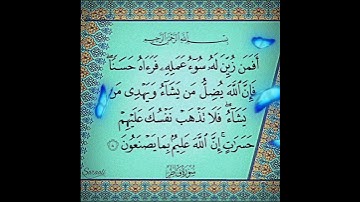 بِسْمِ اللَّهِ الرَّحْمَٰنِ الرَّحِيمِ
أَفَمَن زُيِّنَ لَهُ سُوءُ عَمَلِهِ فَرَءَاهُ حَسَنًا
فَإِنَّ اللَّهَ يُضِلُّ مَن يَشَاءُ وَيَهْدِى مَن
يَشَاءُ فَلَا تَذْهَبْ نَفْسُكَ عَلَيْهِمْ
حَسَرَٰتٍ إِنَّ اللَّهَ عَلِيمٌ بِمَا يَصْنَعُونَ ٨
سورة فاطر